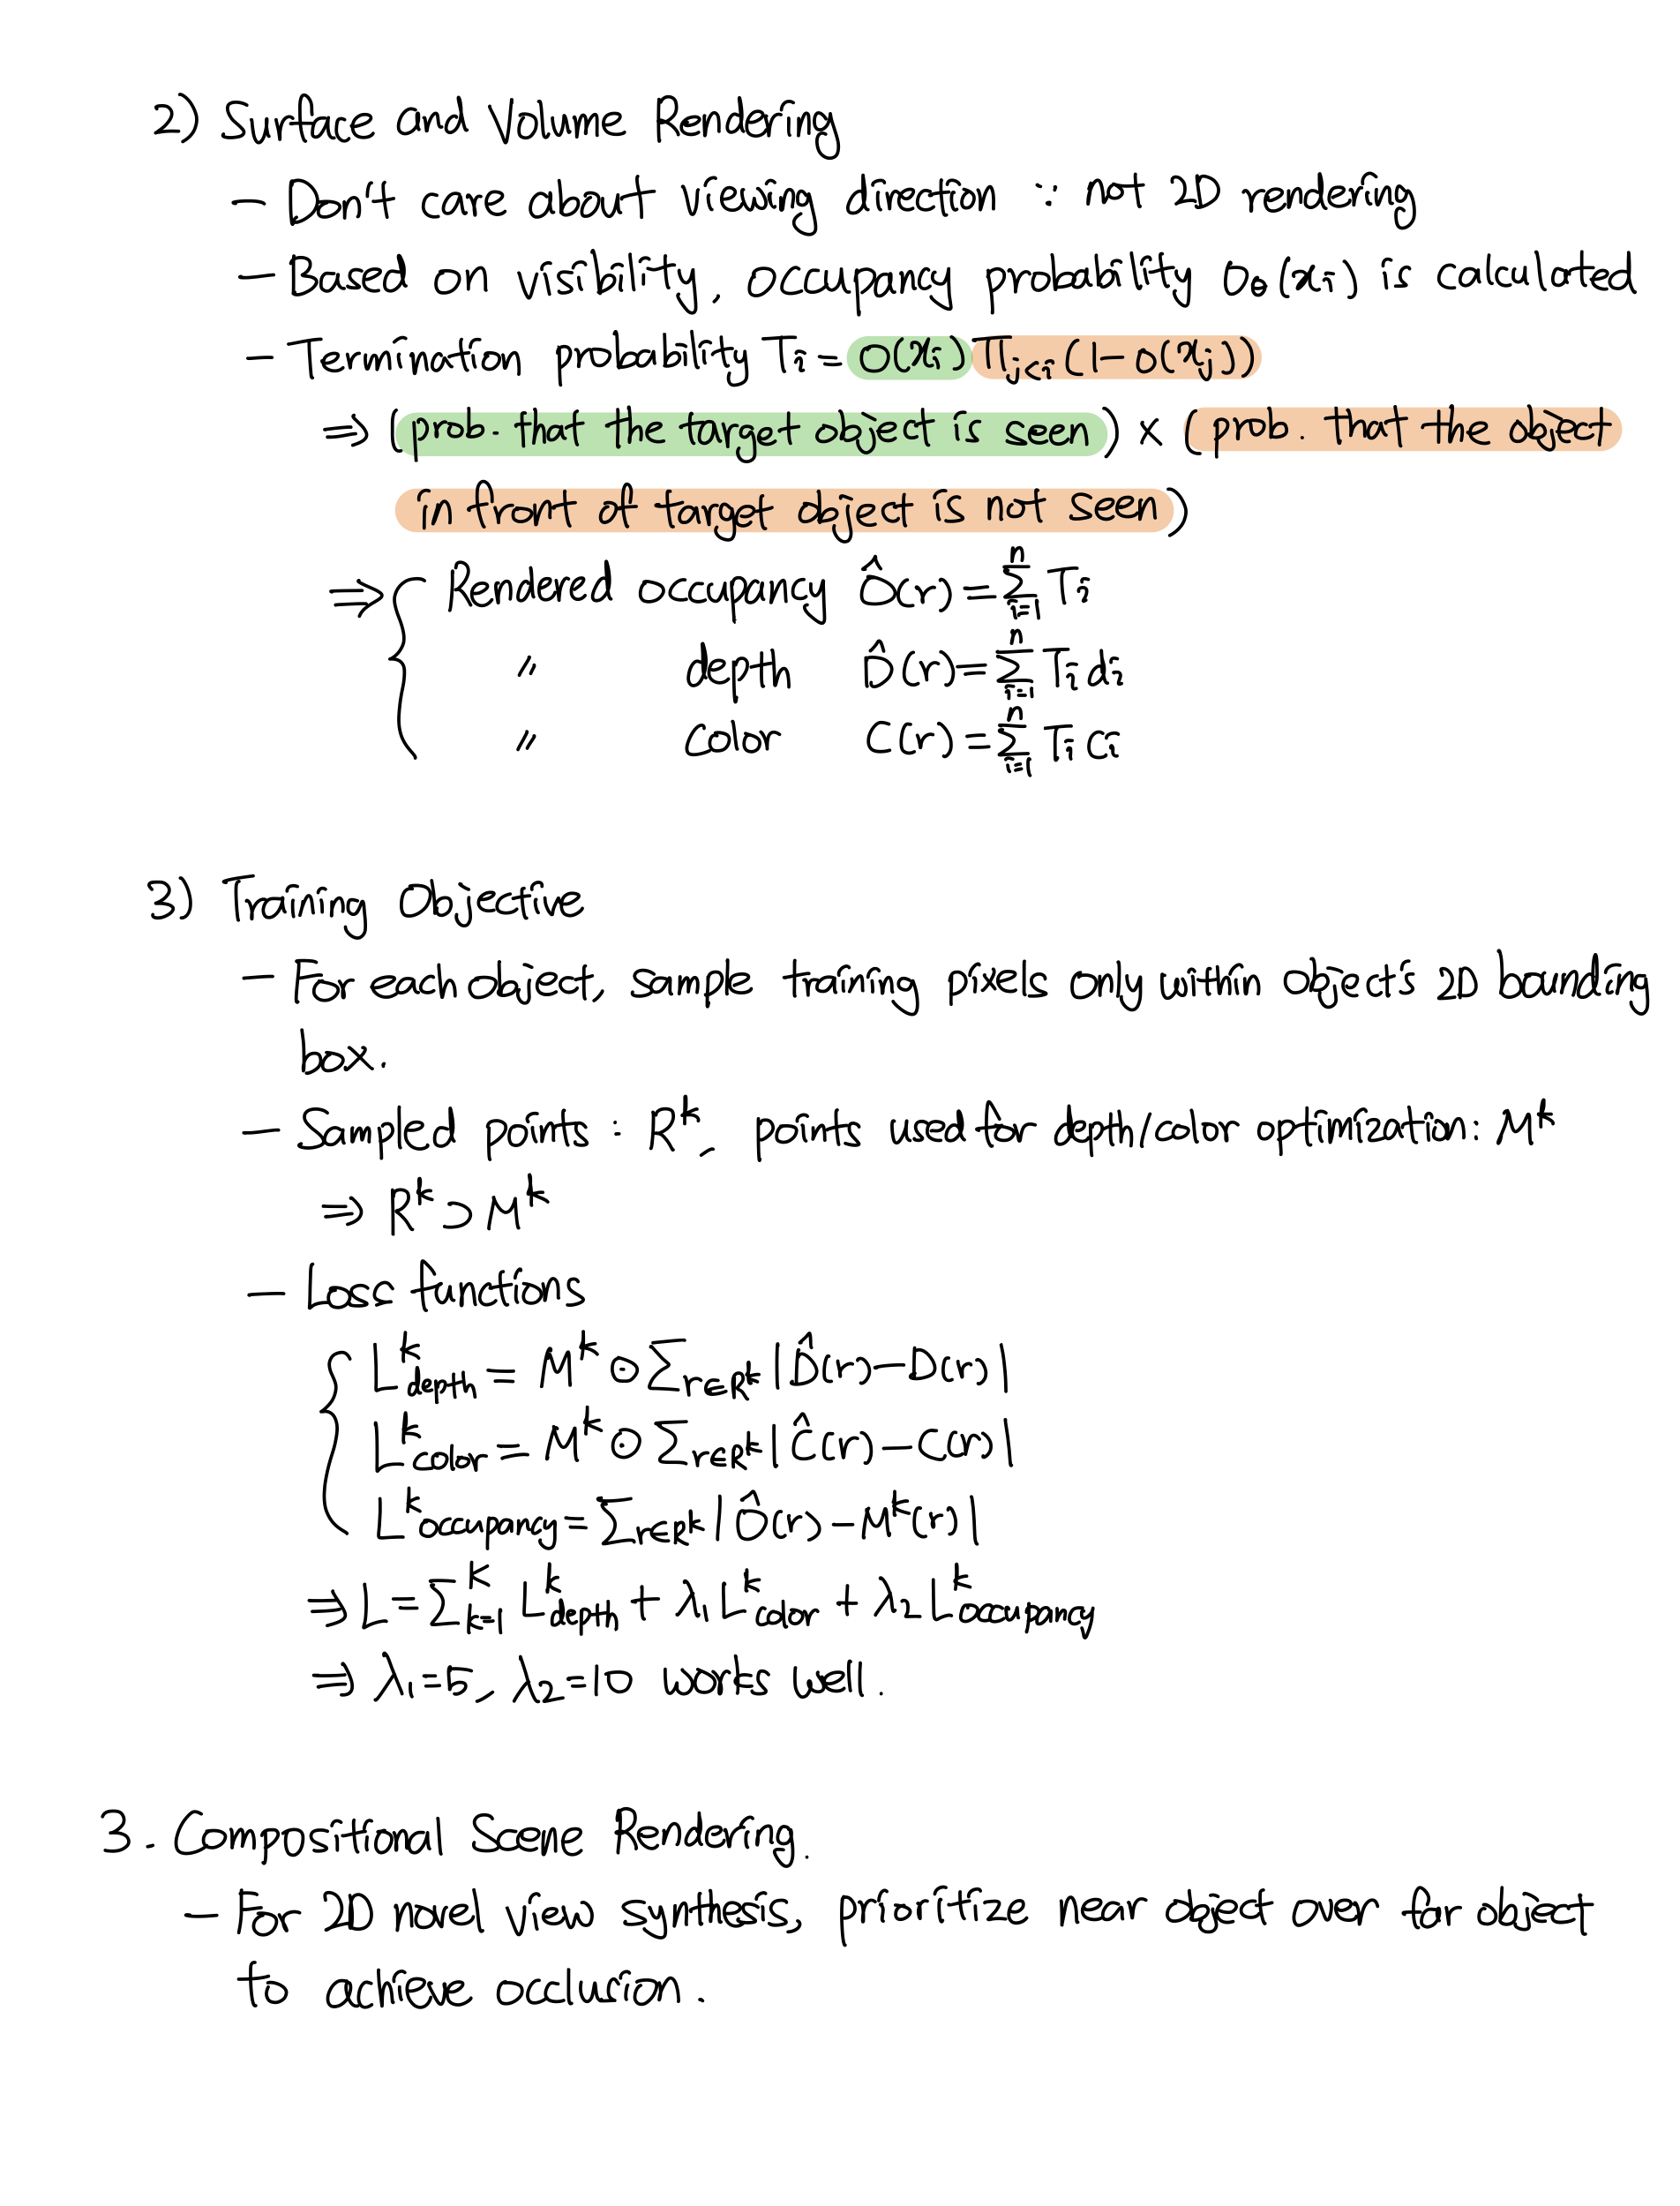 2) Surface and Volume Rendering
- Don't care about viewing direction ∵ not 2D rendering
- Based on visibility, occupancy probability Oθ(xi) is calculated
- Termination probability Ti = O(xi) Πj<i (1-O(xj))
⇒ (prob. that the target object is seen) × (prob. that the object
in front of target object is not seen)
⇒ { Rendered occupancy Ô(r) = Σ_{i=1}^{n} Ti
〃 depth D̂(r) = Σ_{i=1}^{n} Ti di
〃 Color C(r) = Σ_{i=1}^{n} Ti Ci
3) Training Objective
- For each object, sample training pixels only within object's 2D bounding
box.
- Sampled points : R^k, points used for depth/color optimization: M^k
⇒ R^k ⊃ M^k
- Loss functions
{ L^k_depth = M^k ⊙ Σ_{r∈R^k} |D̂(r) - D(r)|
L^k_color = M^k ⊙ Σ_{r∈R^k} |Ĉ(r) - C(r)|
L^k_occupancy = Σ_{r∈R^k} |Ô(r) - M^k(r)|
⇒ L = Σ_{k=1}^{K} L^k_depth + λ1 L^k_color + λ2 L^k_occupancy
⇒ λ1=5, λ2=10 works well.
3. Compositional Scene Rendering.
- For 2D novel view synthesis, prioritize near object over far object
to achieve occlusion.